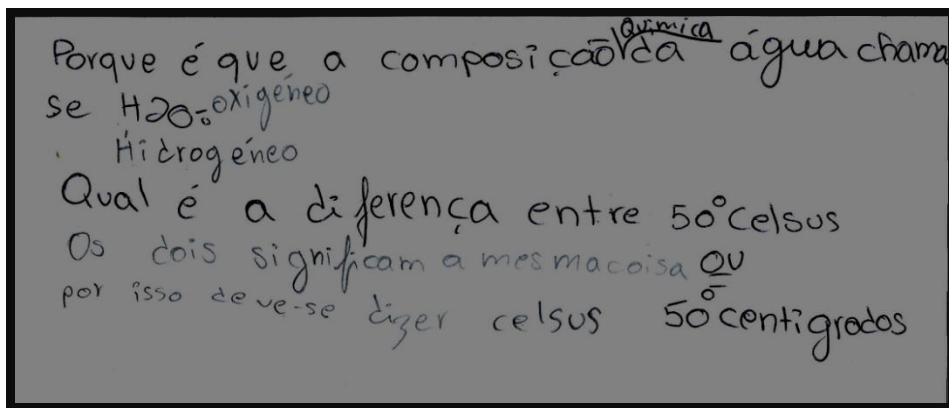 Porque é que a composição Química da água chama
se H2O: oxigéneo
Hidrogéneo
Qual é a diferença entre 50° Celsus
Os dois significam a mesma coisa OU
por isso deve-se dizer celsus 50° centigrados